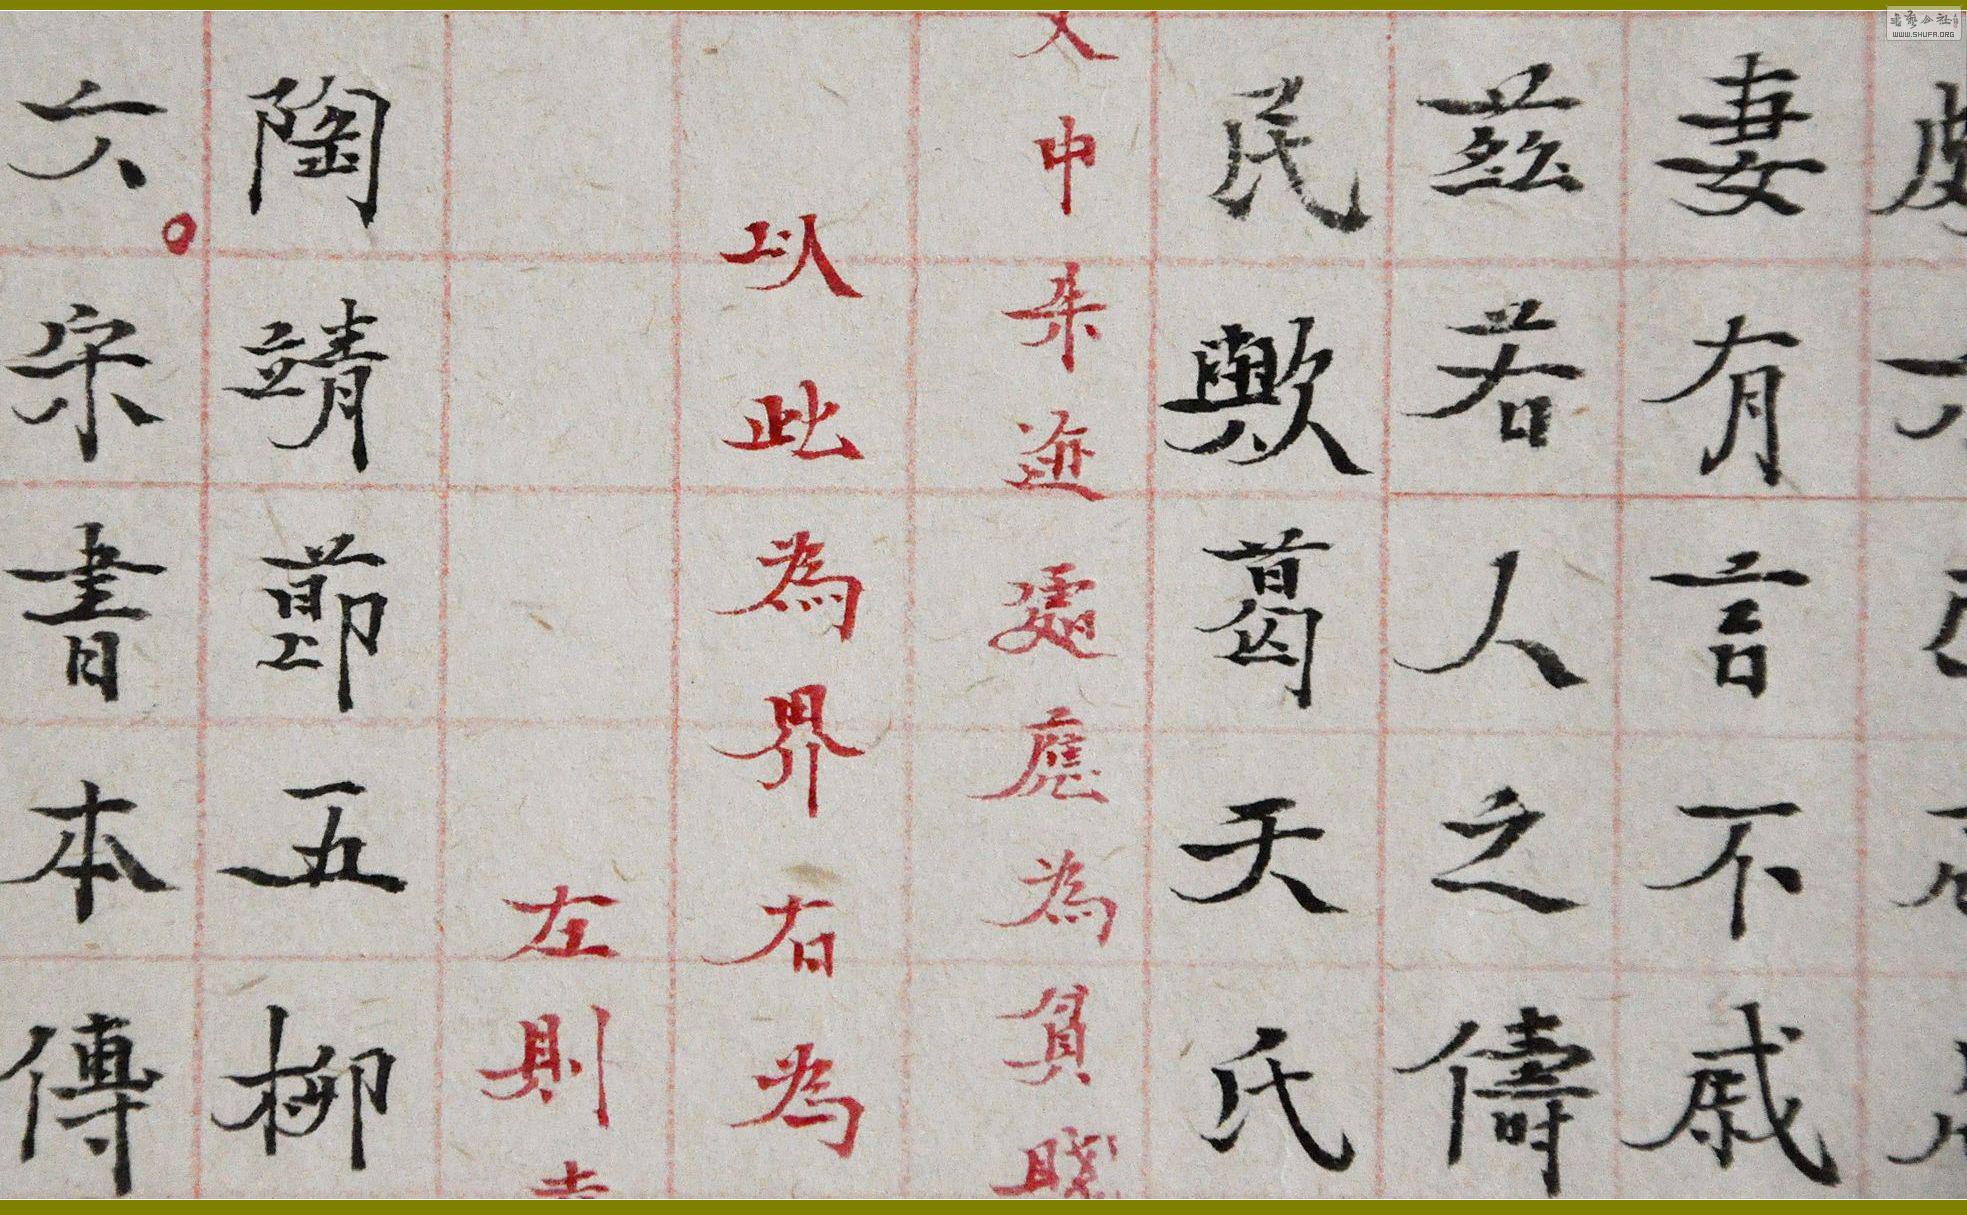 妻有言不戚
茲若人之儔
民歟葛天氏
文中朱迹處應為貧賤
以此為界右為
左則
陶靖節五柳
六宋書本傳
WWW.SHUFA.ORG